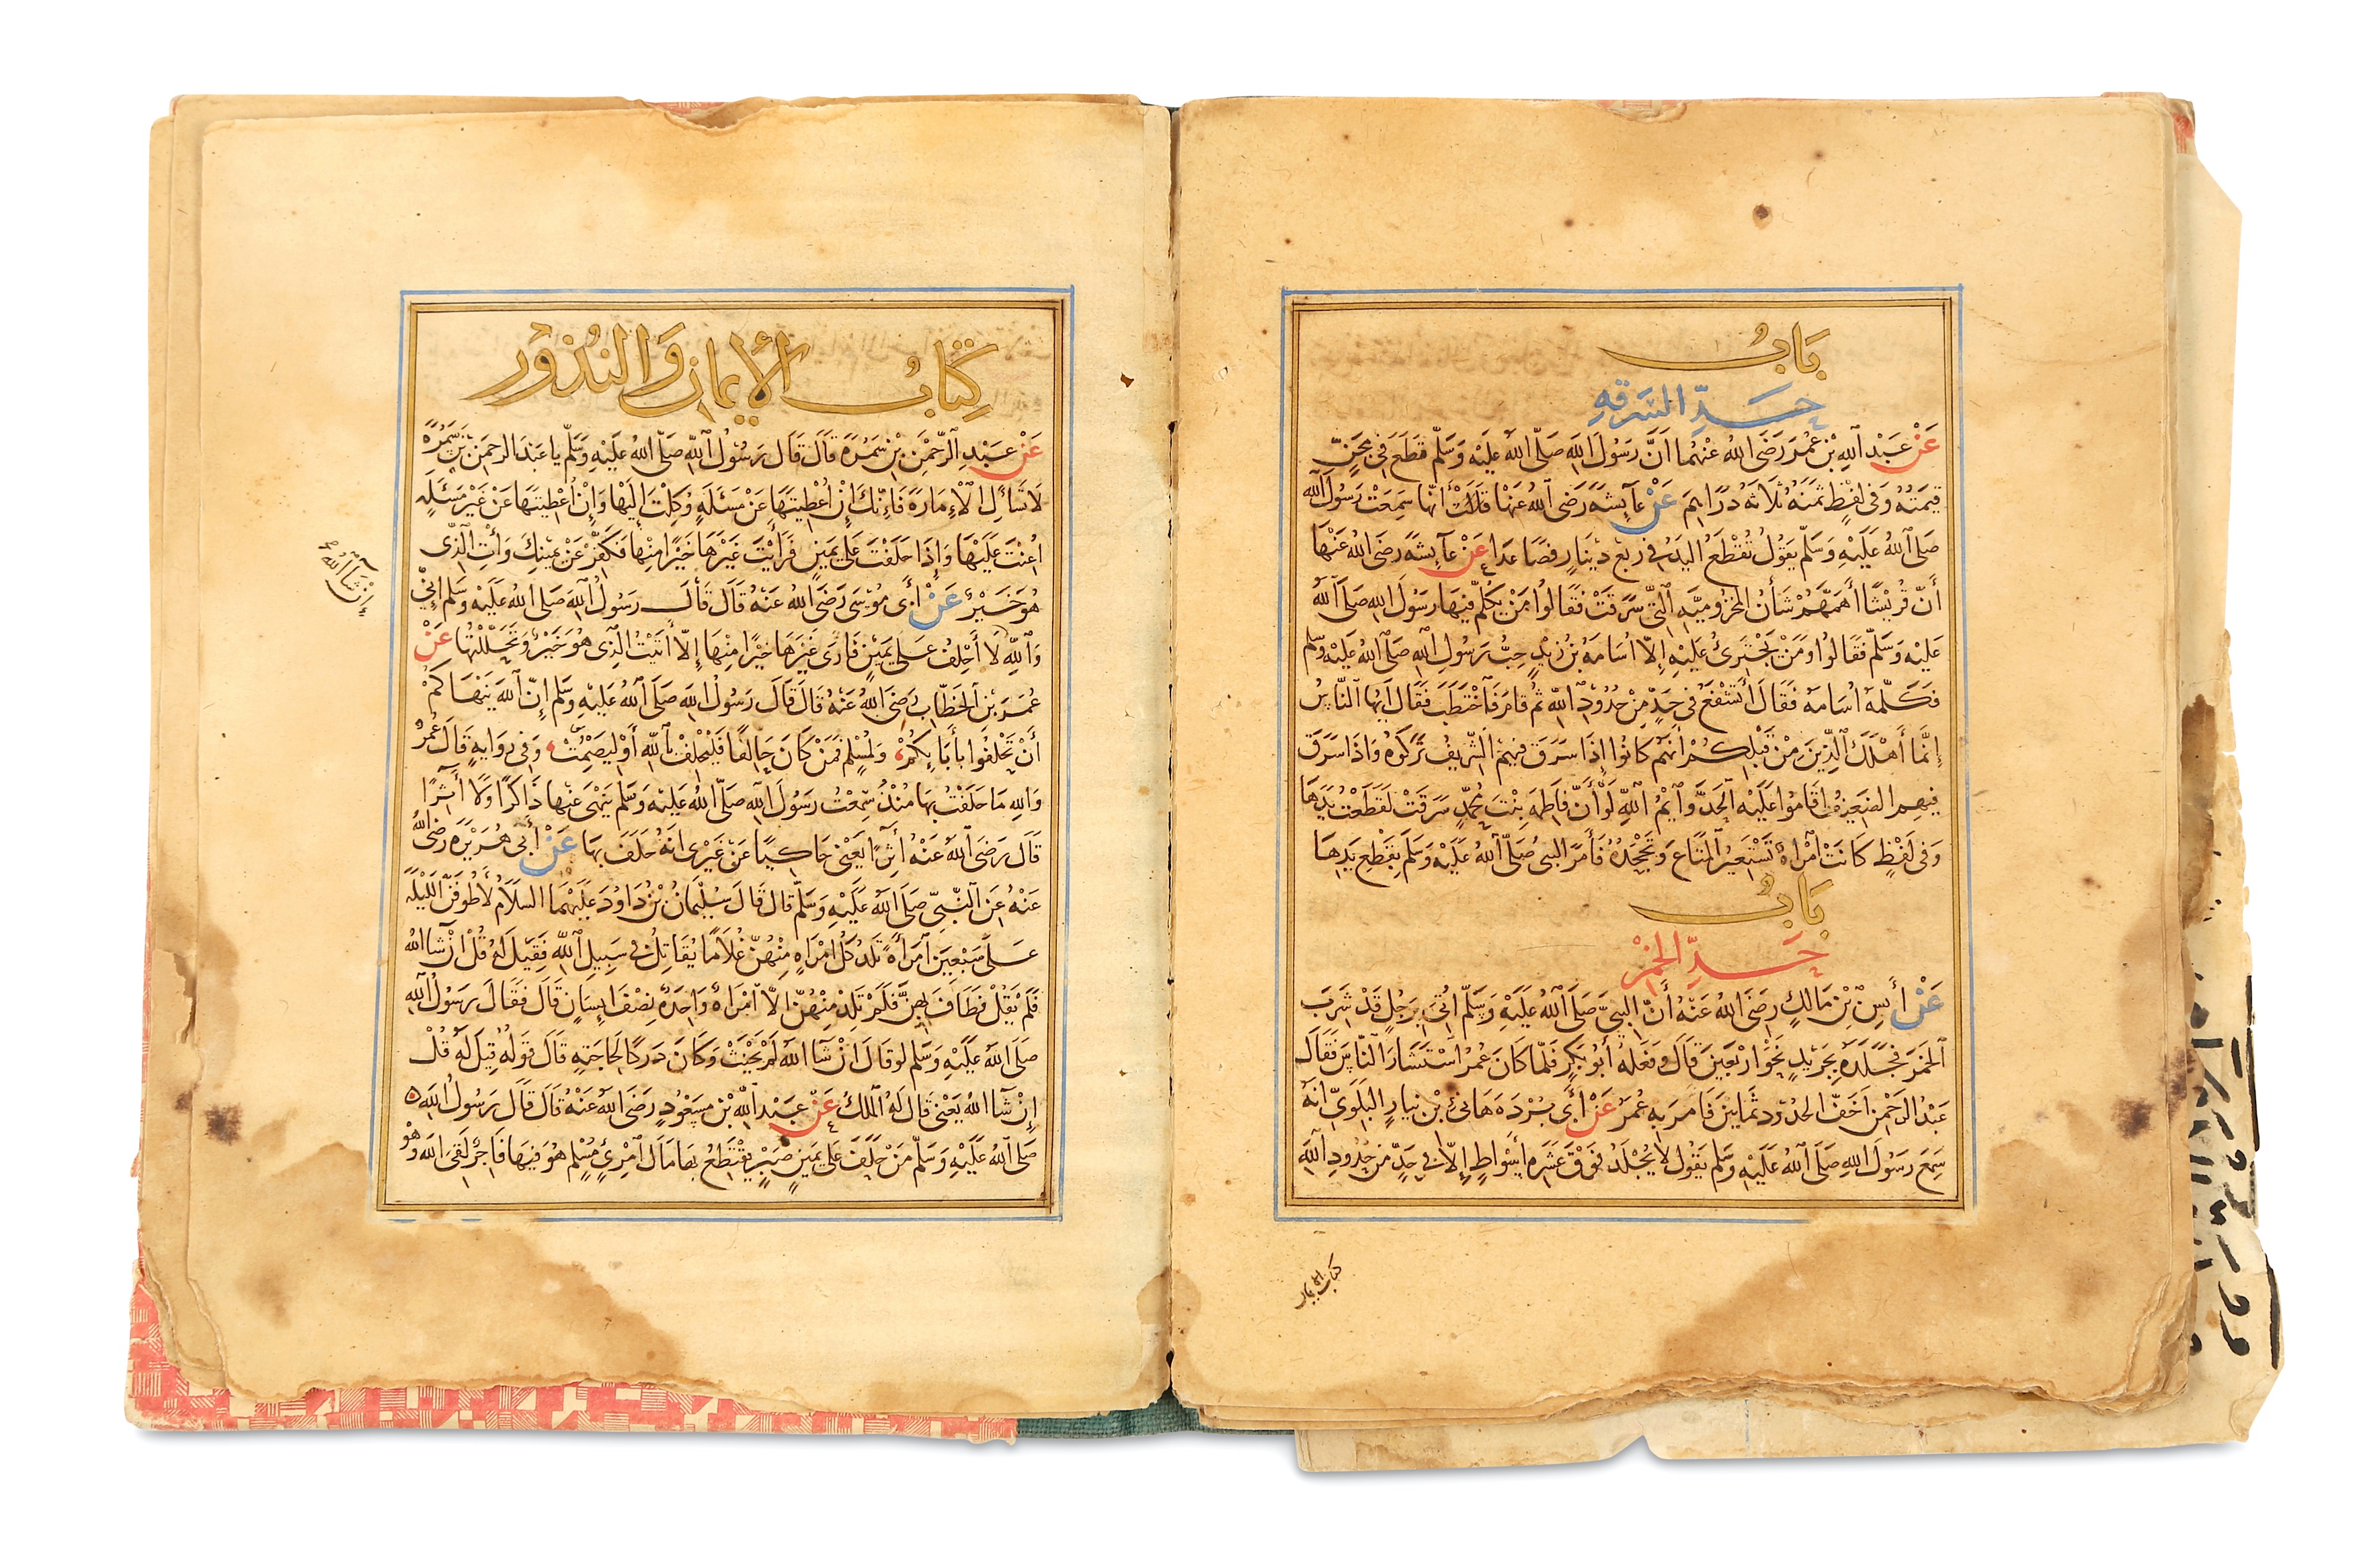 بَابُ
حَدِّ السَّرِقَهِ
عَنْ عَبْدِ اللهِ بْنِ عُمَرَ رَضَىَ اللهُ عَنْهُما اَنَّ رَسُولَ اللهِ صَلَّى اللهُ عَلَيْهِ وَسَلَّم قَطَعَ فِى مِجَنٍّ
قِيمَتُهُ وَفِى لَفْظٍ ثَمَنُهُ ثَلَاثَهُ دَرَاهِمَ عَنْ عَآئِشَهَ رَضَى اللهُ عَنْهَا قَلَاتْ اَنَّهَا سَمِعَتْ رَسُولَ اللهِ
صَلَى اللهُ عَلَيْهِ وَسَلَّم يَقُولُ تُقْطَعُ الْيَدُ فِى رُبْعِ دِيْنَارٍ فَصَاعدَا عَنْ عَآئِشَهَ رَضَى اللهُ عَنْهَا
أَنَّ قُرَيْشًا أَهَمَّهُمْ شَأْنُ الْمَخْزُومِيَّهِ الَّتِى سَرَقَتْ فَقَالُوا مَنْ يُكَلِّمُ فِيهَا رَسُولَ اللهِ صَلَى اللهُ
عَلَيْهِ وَسَلَّم فَقَالُوا وَمَنْ يَجْتَرِئُ عَلَيْهِ إِلَّا اُسَامَهُ بْنُ زَيْدٍ حِبُّ رَسُولِ اللهِ صَلَى اللهُ عَلَيْهِ وَسَلَّم
فَكَلَّمَهُ اُسَامَهُ فَقَالَ أَتَشْفَعُ فِى حَدٍّ مِنْ حُدُوْدِ اللهِ ثُمَّ قَامَ فَاخْتَطَبَ فَقَالَ اَيُّهَا النَّاسُ
إِنَّمَا أَهْلَكَ الَّذِينَ مِنْ قَبْلِكُمْ أَنَّهُمْ كَانُوا إِذَا سَرَقَ فِيهِمُ الشَّرِيفُ تَرَكُوهُ وَاذَا سَرَقَ
فِيهِمُ الضَّعِيفُ اَقَامُوا عَلَيْهِ الْحَدَّ وَآيْمُ اللهِ لَوْ أَنَّ فَاطِمَهَ بِنْتَ مُحَمَّدٍ سَرَقَتْ لَقَطَعْتُ يَدَهَا
وَفِى لَفْظٍ كَانَتْ اَمْرَاهُ تَسْتَعِيرُ الْمَتَاعَ وَتَجْحَدُهُ فَأَمَرَ النَّبِىُّ صَلَّى اللهُ عَلَيْهِ وَسَلَّمَ بِقَطْعِ يَدِهَا
بَابُ
حَدِّ الْخَمْرِ
عَنْ أَنَسِ بْنِ مَالِكٍ رَضَىَ اللهُ عَنْهُ أَنَّ النَّبِىَّ صَلَى اللهُ عَلَيْهِ وَسَلَّمَ اُتِىَ بِرَجُلٍ قَدْ شَرِبَ
الْخَمَرَ فَجَلَدَهُ بِجَرِيْدٍ نَحْوَ اَرْبَعِينَ قَالَ وَفَعَلَهُ أَبُو بَكْرٍ فَلَمَّا كَانَ عُمَرُ اسْتَشَارَ النَّاسَ فَقَالَ
عَبْدُ الرَّحْمٰنِ اَخَفَّ الحُدُودِ ثَمَانِيْنَ فَامَرَ بِهِ عُمَرُ عَنْ أَبِى بُرْدَهَ هَانِئ بْنِ نِيَارٍ الْبَلَوِىِّ انَّهُ
سَمِعَ رَسُولَ اللهِ صَلَى اللهُ عَلَيْهِ وَسَلَّم يَقُولُ لَا يُجْلَدُ فَوْقَ عَشَرَهِ أَسْوَاطٍ إِلَّا فِى حَدٍّ مِنْ حُدُودِ اللهِ
كتاب الايمان
كِتَابُ الأَيْمَانِ وَالنُّذُوْرِ
عَنْ عَبْدِ الرَّحْمٰنِ بْنِ سَمُرَهَ قَالَ قَالَ رَسُوْلُ اللهِ صَلَّى اللهُ عَلَيْهِ وَسَلَّم يَا عَبْدَ الرحمٰنِ بْنَ سَمُرَهَ
لَا تَسْأَلِ الْإِمَارَهَ فَإِنَّكَ إِنْ اُعْطِيتَهَا عَنْ مَسْئَلَهٍ وُكِلْتَ إِلَيْهَا وَإِنْ اُعْطِيتَهَا عَنْ غَيْرِ مَسْئَلَهٍ
اُعِنْتَ عَلَيْهَا وَإِذَا حَلَفْتَ عَلَى يَمِينٍ فَرَأَيْتَ غَيْرَهَا خَيْرًا مِنْهَا فَكَفِّرْ عَنْ يَمِيْنِكَ وَأْتِ الَّذِى
هُوَ خَيْرٌ عَنْ أَبِى مُوْسَى رَضَىَ اللهُ عَنْهُ قَالَ قَالَ رَسُولُ اللهِ صَلَى اللهُ عَلَيْهِ وَسَلَّم إِنِّى
إِنْ شَآءَ اللهُ
وَاللهِ لَا أَحْلِفُ عَلَى يَمِيْنٍ فَارَى غَيْرَهَا خَيْرًا مِنْهَا إِلَّا أَتَيْتُ الَّذِى هُوَ خَيْرٌ وَتَحَلَّلْتُهَا عَنْ
عُمَرَ بْنِ الْخَطَّابِ رَضِىَ اللهُ عَنْهُ قَالَ قَالَ رَسُولُ اللهِ صَلَى اللهُ عَلَيْهِ وَسَلَّم إِنَّ اللهَ يَنْهَاكُمْ
أَنْ تَحْلِفُوا بِأَبَائِكُمْ وَلِمُسْلِمٍ فَمَنْ كَانَ حَالِفًا فَلْيَحْلِفْ بِاللهِ أَوْ لِيَصْمُتْ وَفِى رِوَايَهٍ قَالَ عُمَرُ
وَاللهِ مَا حَلَفْتُ بِهَا مُنْذُ سَمِعْتُ رَسُولَ اللهِ صَلَّى اللهُ عَلَيْهِ وَسَلَّم يَنْهَى عَنْهَا ذَاكِرًا وَلَا آثِرًا
قَالَ رَضَىَ اللهُ عَنْهُ أَثِرًا يَعْنِى حَاكِيًا عَنْ غَيْرِى انَّهُ حَلَفَ بِهَا عَنْ أَبِى هُرَيْرَهَ رَضِىَ اللهُ
عَنْهُ عَنِ النَّبِىِّ صَلَى اللهُ عَلَيْهِ وَسَلَّم قَالَ قَالَ سُلَيْمَانُ بْنُ دَاوُدَ عَلَيْهِمَا السَّلَامُ لَأَطُوفَنَّ اللَّيْلَهَ
عَلَى سَبْعِيَنَ اَمْرَأَهً تَلِدُ كُلُّ امْرَاهٍ مِنْهُنَّ غُلَامًا يُقَاتِلُ فِى سَبِيلِ اللهِ فَقِيلَ لَهُ قُلْ اِنْ شَآ اللهُ
فَلَمْ يَقُلْ فَطَافَ بِهِنَّ فَلَمْ تَلِدْ مِنْهُنَّ الَّا اَمْرَاهٌ وَاحِدَهٌ نِصْفَ اِنْسَانٍ قَالَ فَقَالَ رَسُولُ اللهِ
صَلَى اللهُ عَلَيْهِ وَسَلَّم لَو قَالَ اِنْ شَآ اللهُ لَمْ يَحْنَثْ وَكَانَ دَرَكًا لِحَاجَتِهِ قَالَ قَوْلُهُ قِيلَ لَهُ قُلْ
إِنْ شَآ اللهُ يَعْنِى قَالَ لَهُ الْمَلَكُ عَنْ عَبْدِ اللهِ بْنِ مَسْعُوْدٍ رَضَىَ اللهُ عَنْهُ قَالَ قَالَ رَسُولُ اللهِ
صَلَى اللهُ عَلَيْهِ وَسَلَّم مَنْ حَلَفَ عَلَى يَمِينِ صَبْرٍ يَقْتَطِعُ بِهَا مَالَ امْرِئٍ مُسْلِمٍ هُوَ فِيهَا فَاجِرٌ لَقِىَ اللهَ وَهُوَ